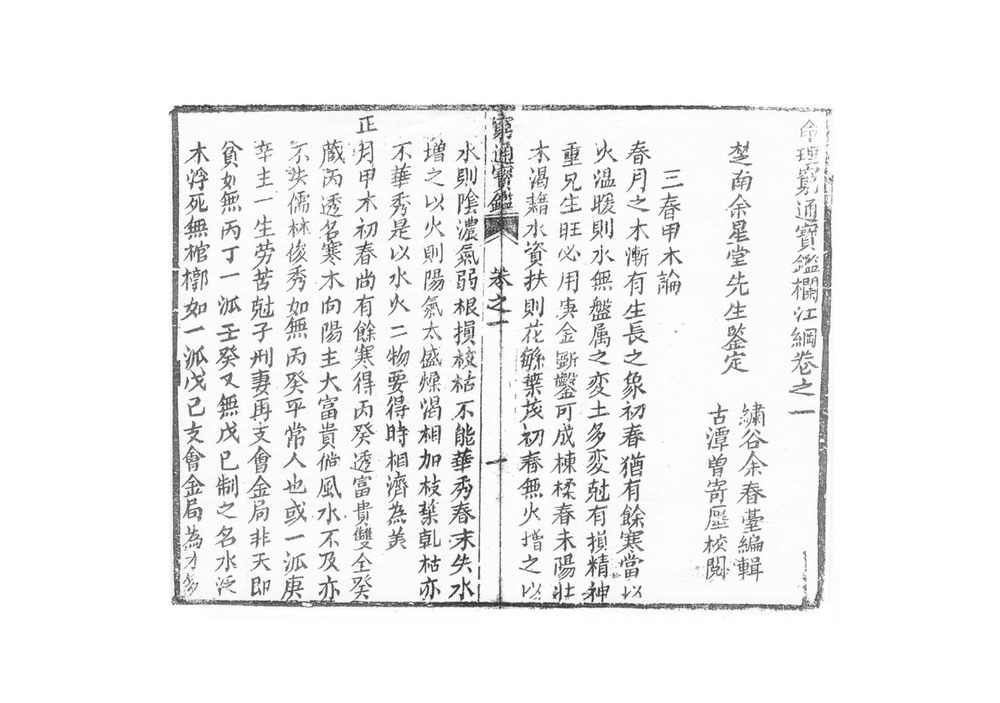 命理窮通寶鑑欄江綱卷之一
楚南余星堂先生鑒定
繡谷余春臺編輯
古潭曾寄廛校閱
三春甲木論
春月之木漸有生長之象初春猶有餘寒當以
火溫暖則水無盤属之変土多変尅有損精神
重見生旺必用庚金斲鑿可成棟楺春末陽壯
木渴藉水資扶則花繇葉茂初春無火增之以
窮通寶鑑
卷之一
一
水則陰濃氣弱根損枝枯不能華秀春末失水
增之以火則陽氣太盛燥渴相加枝葉乹枯亦
不華秀是以水火二物要得時相濟為美
正月甲木初春尚有餘寒得丙癸透富貴雙全癸
蔵丙透名寒木向陽主大富貴倘風水不及亦
不失儒林俊秀如無丙癸平常人也或一泒庚
辛主一生劳苦尅子刑妻再支會金局非夭即
貧如無丙丁一泒壬癸又無戊巳制之名水泛
木浮死無棺槨如一泒戊巳支會金局為才多